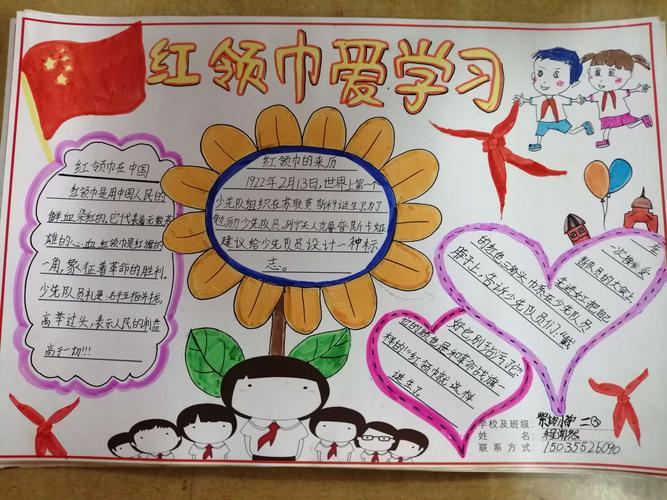 红领巾爱学习
红领巾在中国
红领巾是用中国人民的
鲜血染红的,它代表着无数英
雄的心血,红领巾是红旗的
一角,象征着革命的胜利。
少先队员礼是:右手五指并拢,
高举过头,表示人民的利益
高于一切!!!
红领巾的来历
1922年2月13日,世界上第一个
少先队组织在苏联莫斯科诞生了,为了
鼓励少先队员,列宁夫人克鲁普斯卡娅
建议给少先队员设计一种标
志。
在
一次接受
新队员的大会上
女进工把配
的红色三角头巾系在少先队员
脖子上,告诉少先队员们:"戴
好它,别玷污了它
它的颜色是和革命战旗一
样的"红领巾就这样
诞生了
学校及班级:
小学 二
姓 名:
联系方式:
15035526090